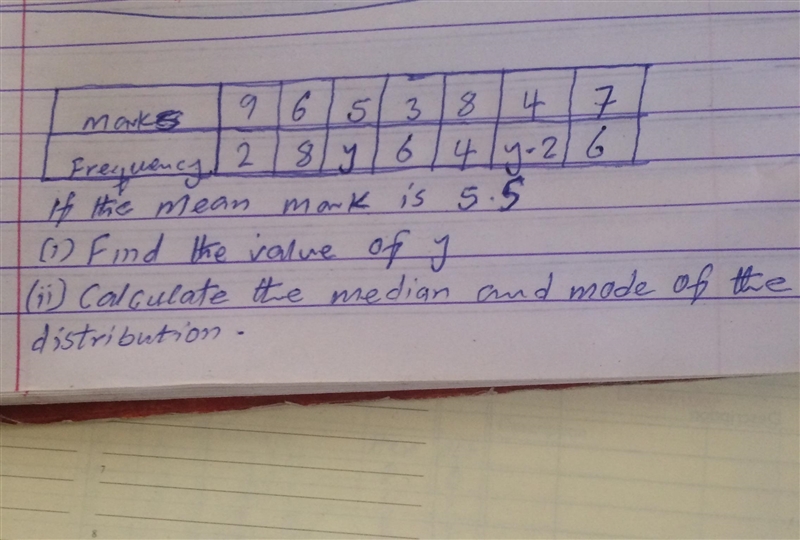 Marks 9 6 5 3 8 4 7
Frequency 2 8 y 6 4 y-2 6
If the mean mark is 5.5
(i) Find the value of y
(ii) Calculate the median and mode of the
distribution.
7
8